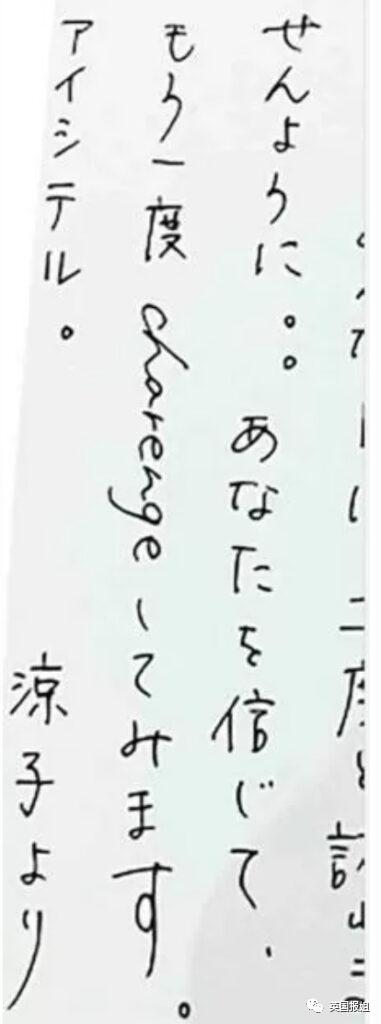 二度と
せんように・・ あなたを信じて、
もう一度 charengeしてみます。
アイシテル。
涼子より
英国报姐